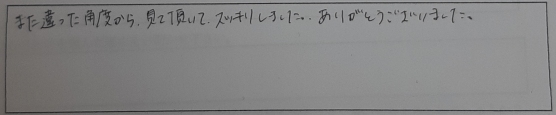 また違った角度から、見て頂いて、スッキリしました。ありがとうございました。